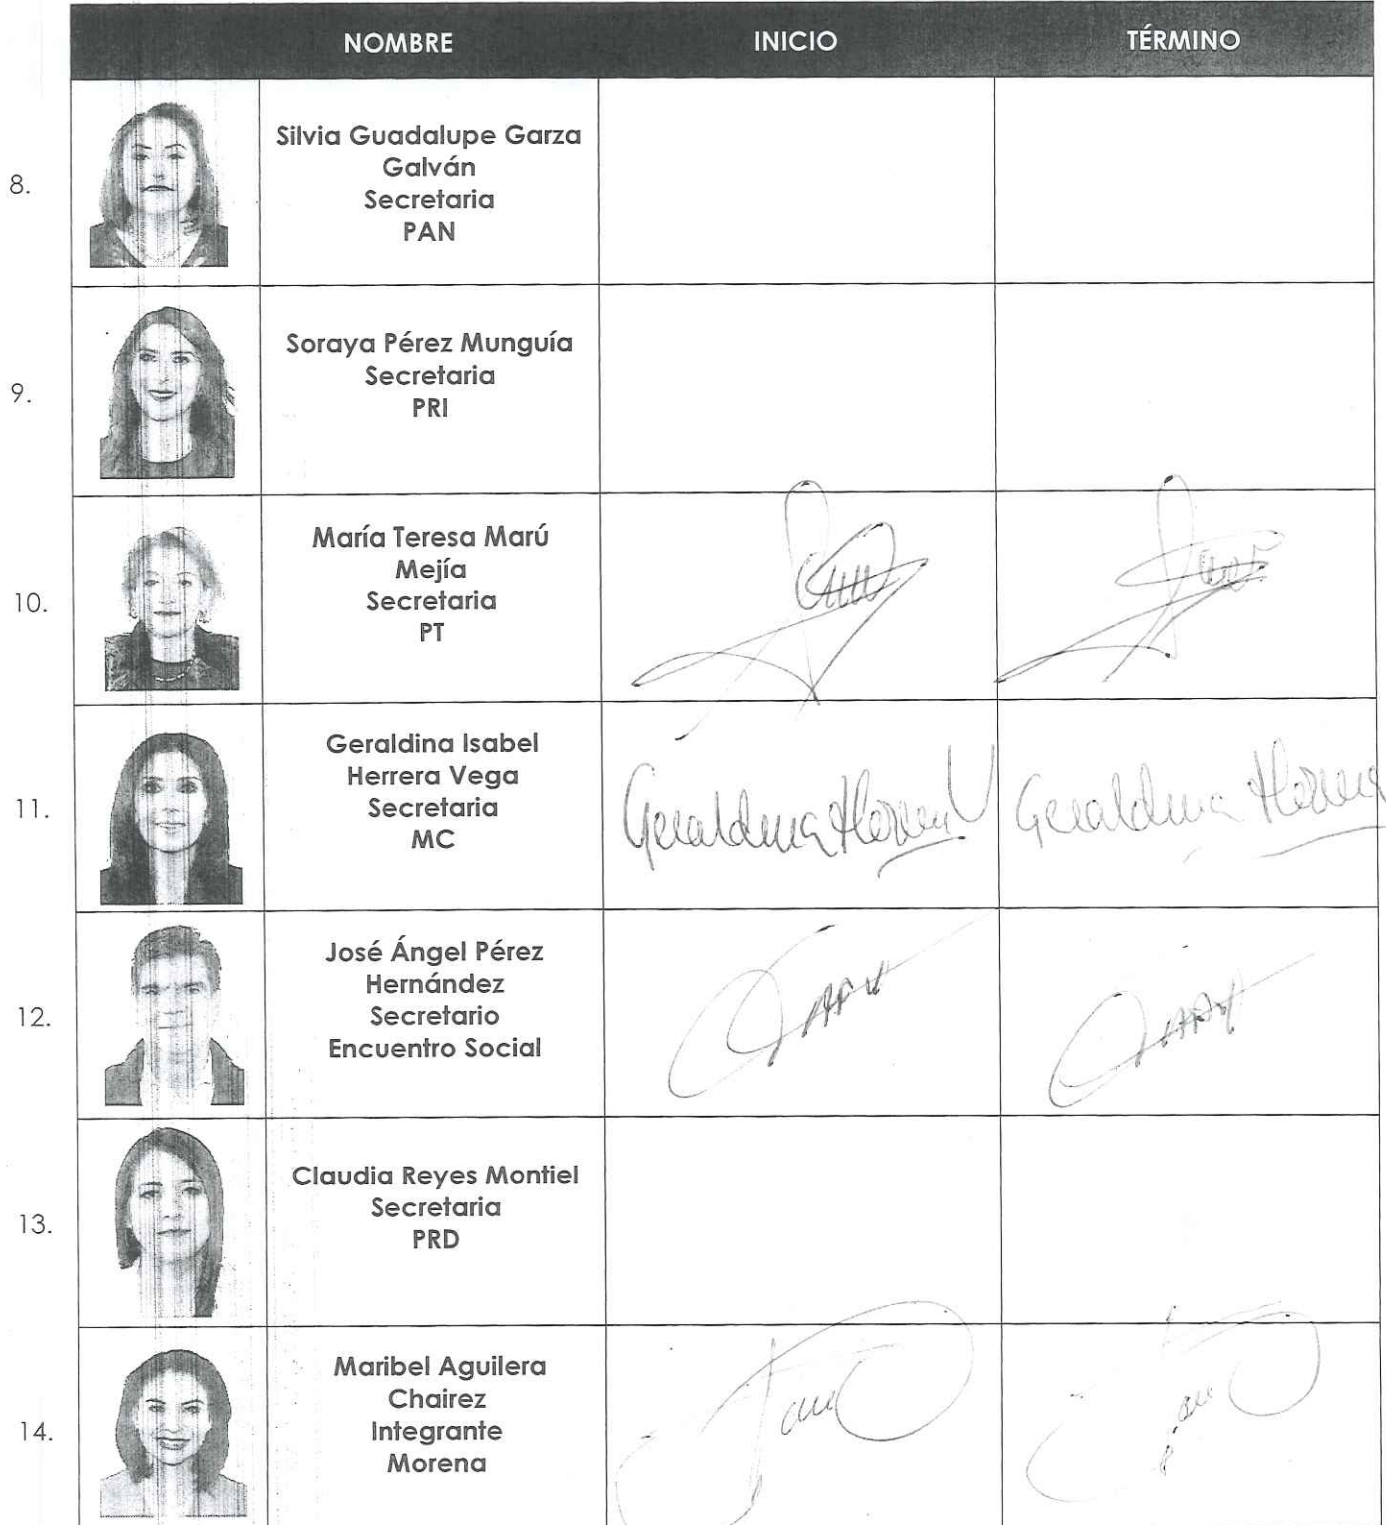 NOMBRE INICIO TÉRMINO
8.
Silvia Guadalupe Garza
Galván
Secretaria
PAN
9.
Soraya Pérez Munguía
Secretaria
PRI
10.
María Teresa Marú
Mejía
Secretaria
PT
11.
Geraldina Isabel
Herrera Vega
Secretaria
MC
Geraldina Herrera V
Geraldina Herrera
12.
José Ángel Pérez
Hernández
Secretario
Encuentro Social
13.
Claudia Reyes Montiel
Secretaria
PRD
14.
Maribel Aguilera
Chairez
Integrante
Morena